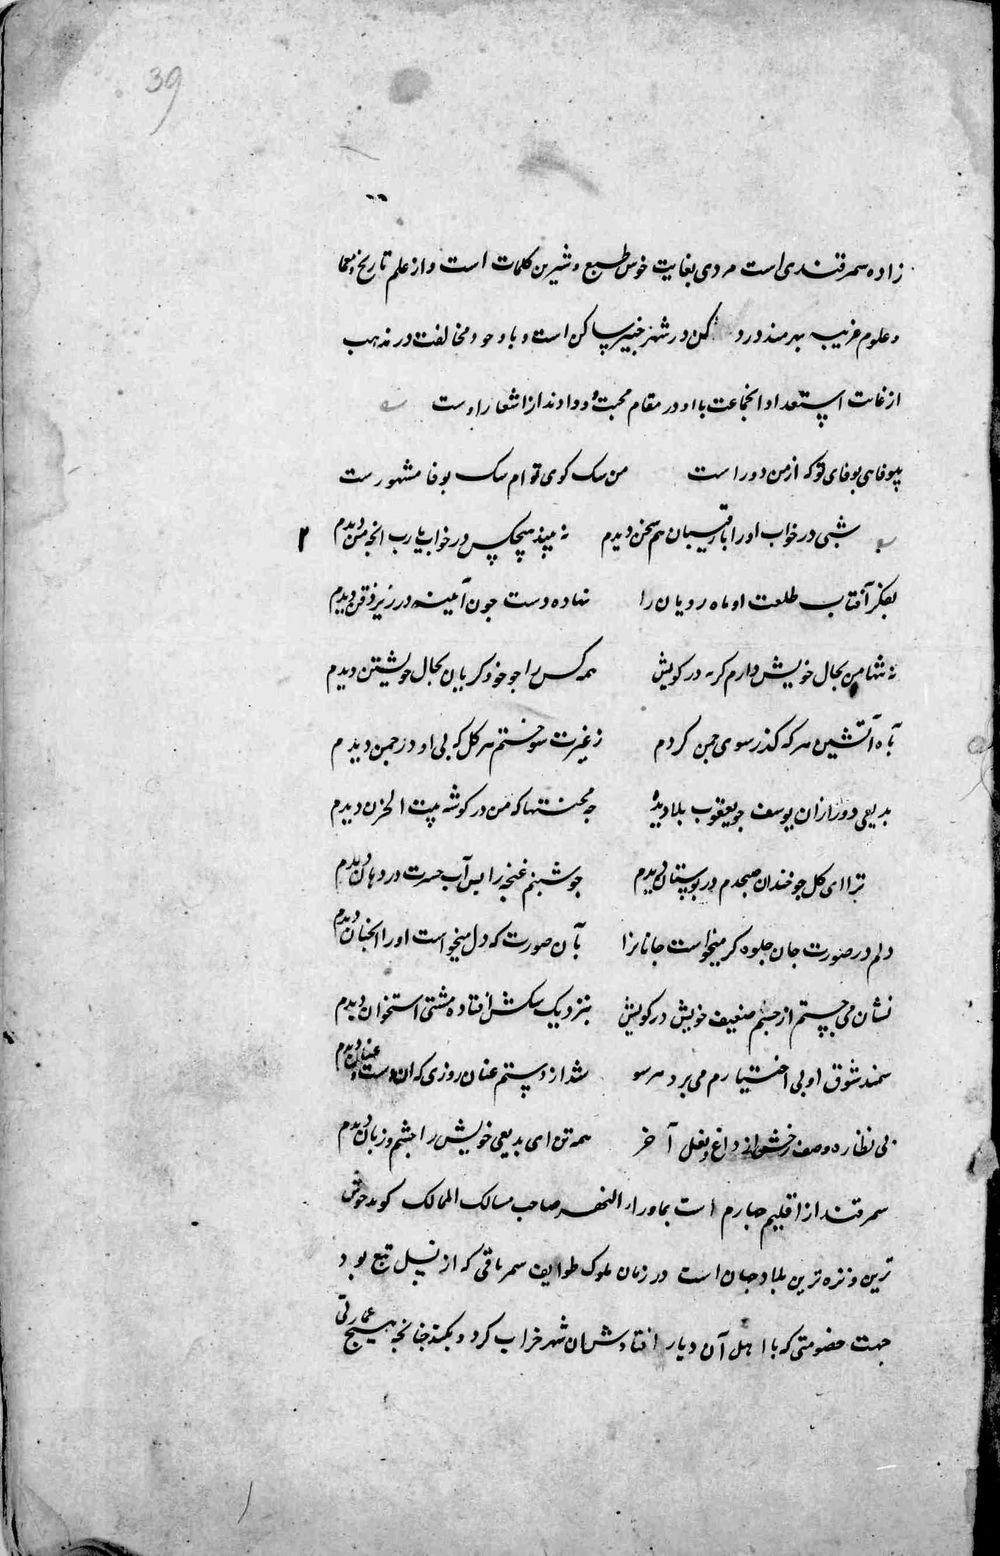 39
زاده سمرقندی است مردی بغایت خوش طبع و شیرین کلمات است و از علم تاریخ و معما
و علوم غریبه بهرمند در شهر ساکن است و با وجود مخالفت در مذهب
از غایت استعداد انجماعت با او در مقام محبت و ودادند از اشعار اوست
بیوفاهی بوفای تو که از من دور است من سک کوی توام سک بوفا مشهورست
شبی در خواب اورا با رقیبان هم سخن دیدم نه بیند هیچکس در خواب یا رب انجه من دیدم ۲
بفکر آفتاب طلعت او ماه رویان را نهاده دست جون آئینه در زیر ذقن دیدم
نه تنها من بحال خویش دارم کریه در کویش همه کس را جو خود کریان بحال خویشتن دیدم
بآه آتشین هر که کذر سوی جمن کردم ز غیرت سوختم هر کل که بی او در جمن دیدم
بدیعی دور ازان یوسف جو یعقوب بلا دیده جه محنتها که من در کوشه بیت الحزن دیدم
ترا ای کل جو خندان صبحدم در بوستان دیدم جو شبنم غنجه را بس آب حسرت در دهان دیدم
دلم در صورت جان جلوه کر میخواست جانانرا بآن صورت که دل میخواست اورا انجنان دیدم
نشان می جستم از جسم ضعیف خویش در کویش بنزدیک سکش افتاده مشتی استخوان دیدم
سمند شوق او بی اختیارم می برد هر سو شد از دستم عنان روزی که ان دست و عنان دیدم
بی نظاره و وصف رخش از داغ و نعل آخر همه تن ای بدیعی خویش را جشم و زبان دیدم
سمرقند از اقلیم جهارم است بماورا النهر صاحب مسالک الممالک کوید خوش
ترین و نزه ترین بلاد جهان است در زمان ملوک طوایف سمر نامی که از نسل تبع بود
جهت خصومتی که با اهل آن دیار افتادش ان شهر خراب کرد و بکند جنانجه هیج عمارتی